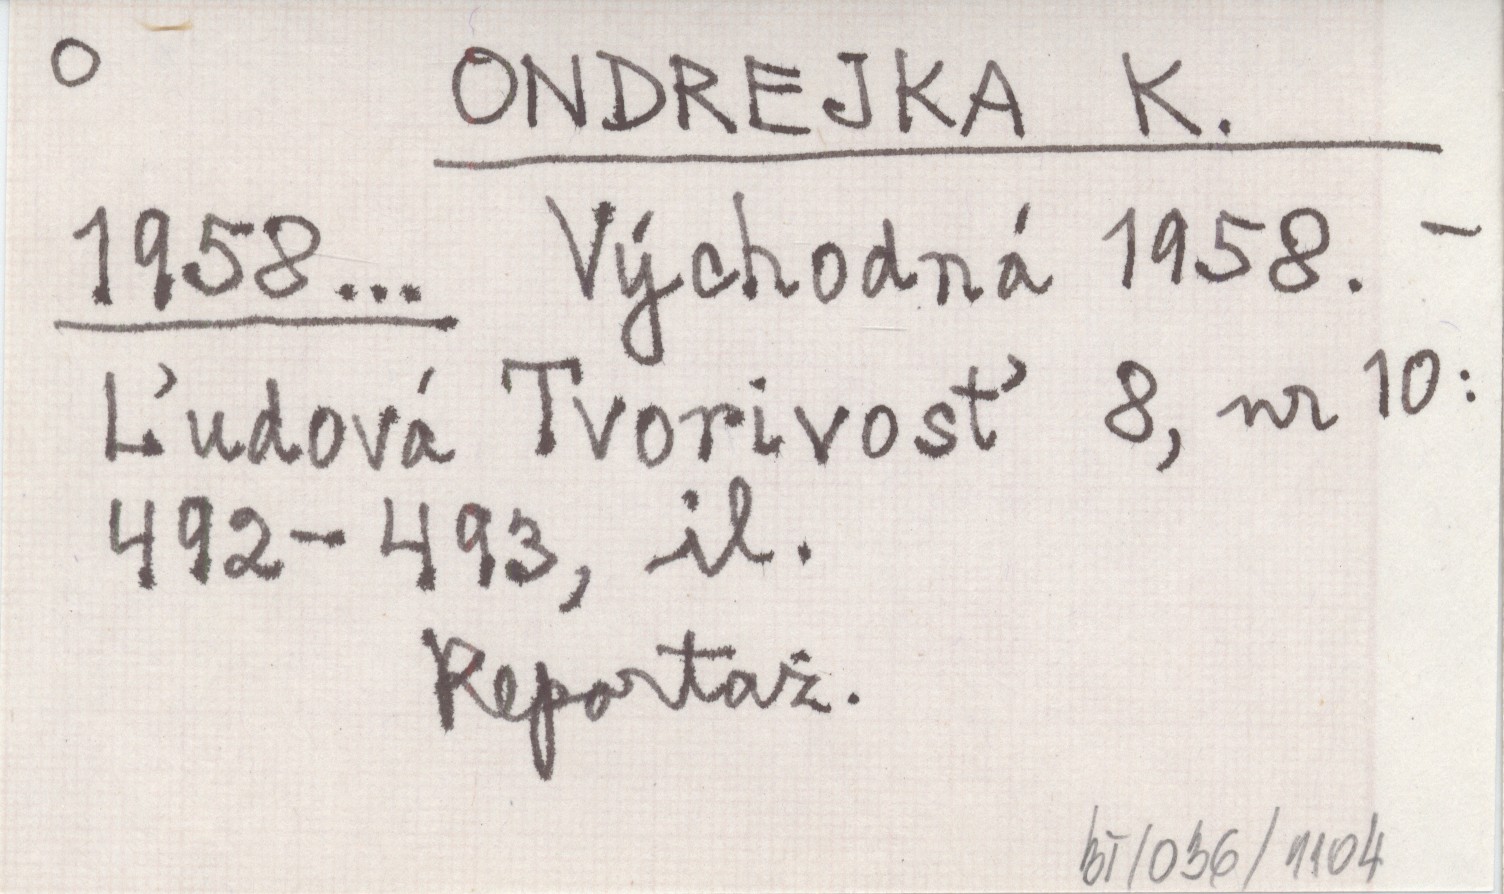 O ONDREJKA K.
1958... Východná 1958. -
Ľudová Tvorivosť 8, nr 10:
492-493, il.
Reportaż.
bī/036/1104